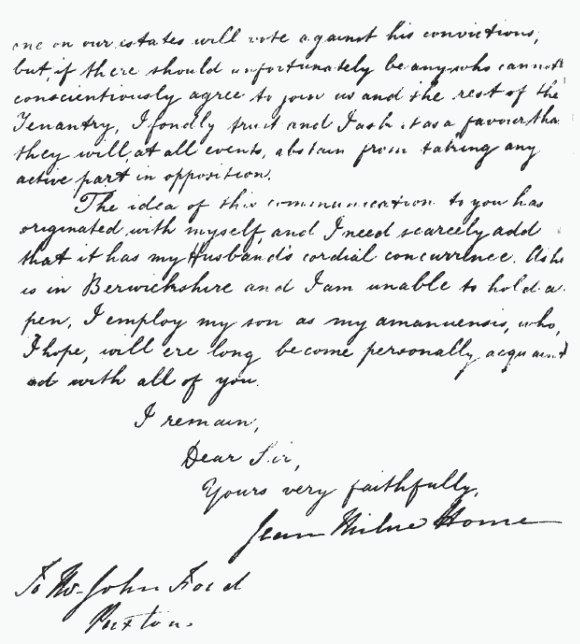 one on our estates will vote against his convictions,
but, if there should unfortunately be any who cannot
conscientiously agree to join us and the rest of the
Tenantry, I fondly trust and I ask it as a favour tha
they will, at all events, abstain from taking any
active part in opposition.
The idea of this communication to you has
originated with myself, and I need scarcely add
that it has my Husband's cordial concurrence. As he
is in Berwickshire and I am unable to hold a
pen, I employ my son as my amanuensis, who,
I hope, will ere long become personally acquaint
ed with all of you.
I remain,
Dear Sir,
Yours very faithfully,
Jean Milne Home
To Mr John Ford
Paxton.